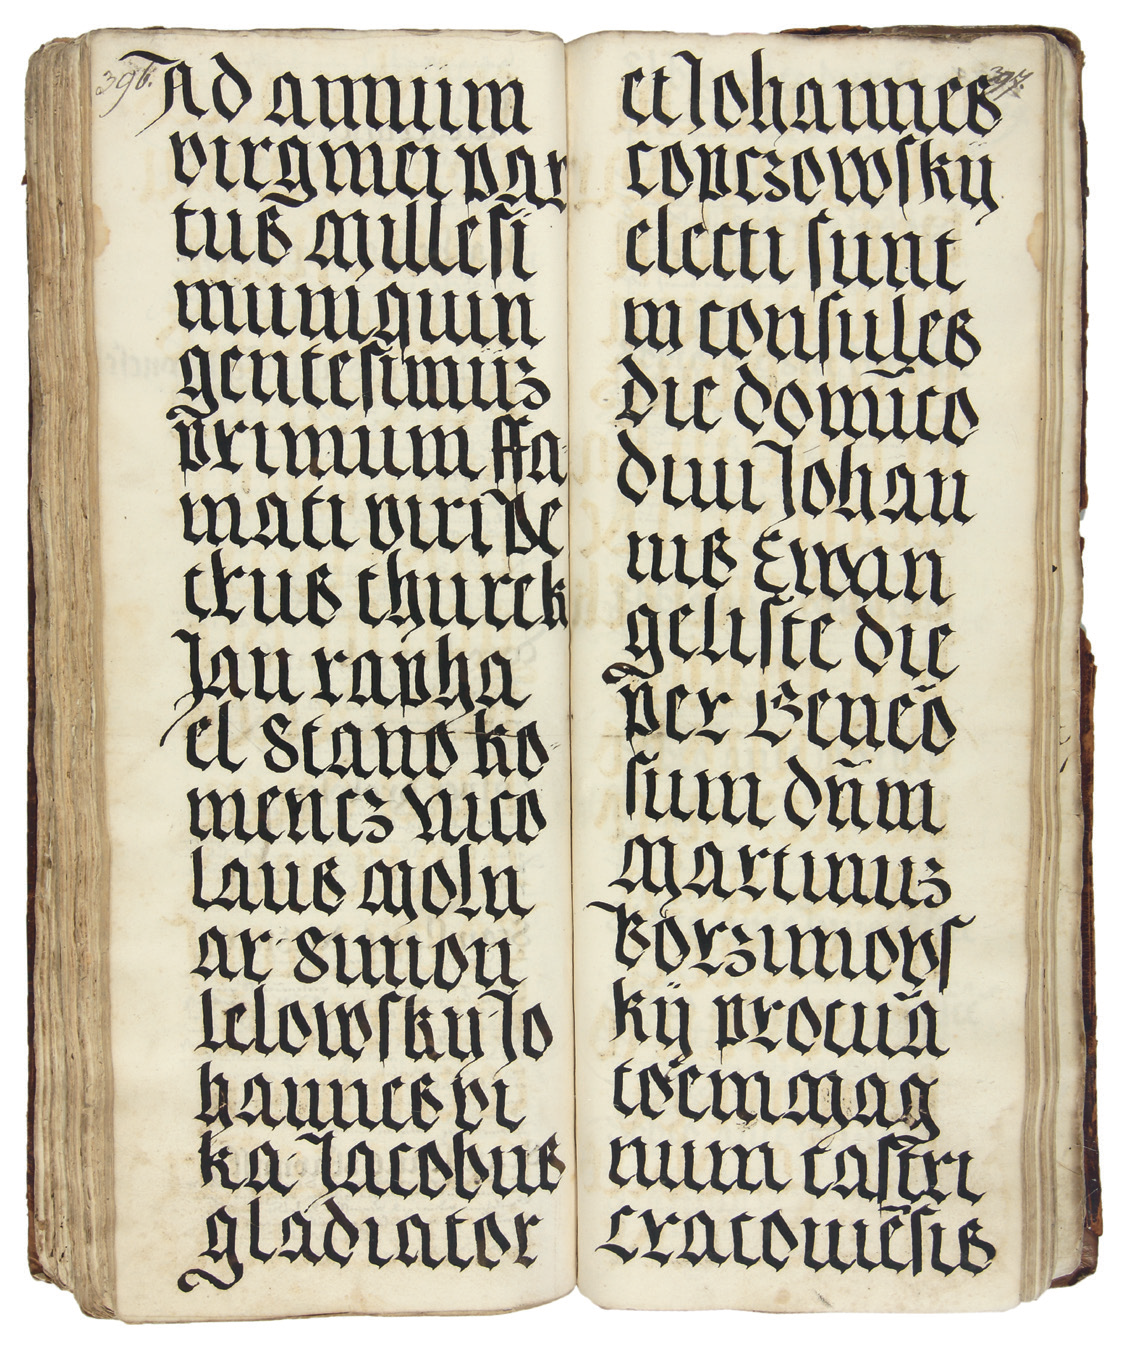 396.
Ad annüm
virginei par
tus Millesi
mumquin
gentesimüz
primum ffa-
mati viri Pe
trus thurek
Jan rapha
el Stano ko
mencz Nico
laus Moln
ar Simon
lelowskyJo
hannes pi
ka Jacobus
gladiator
397.
et Johannes
copczowskÿ
electi sunt
in consules
die domīco
diui Johan
nis Ewan
geliste die
per Gene͠o
sum dn̄m
Martinuz
Borzimows
kÿ procur̄a
toem mag
num castri
cracouiēsis